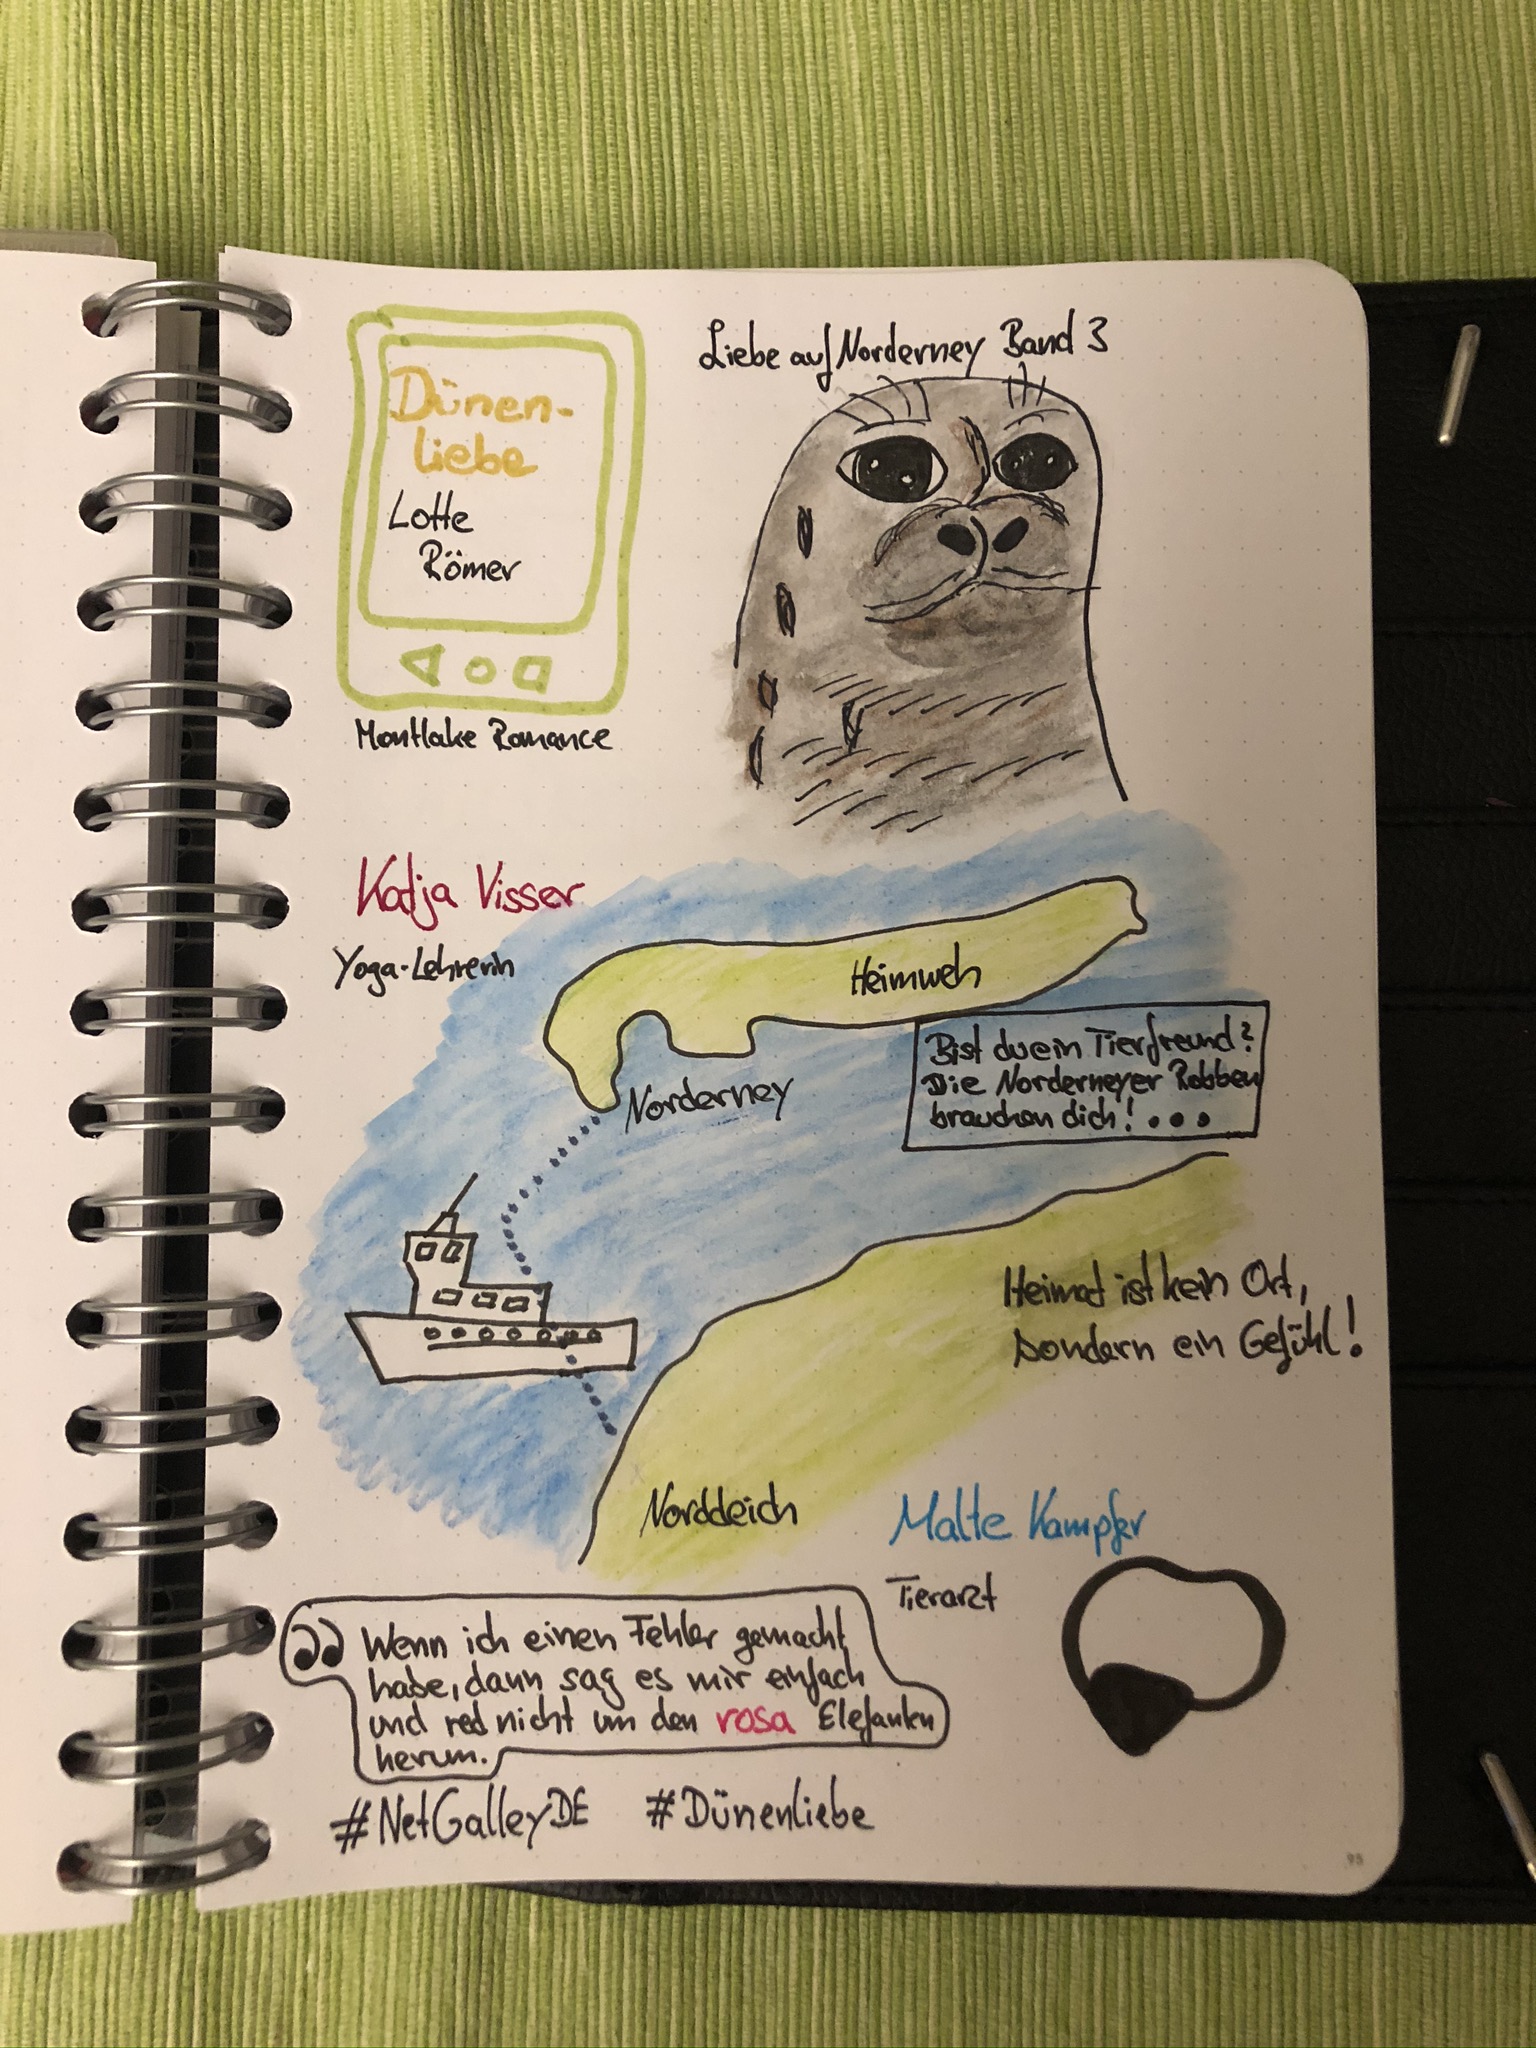 Liebe auf Norderney Band 3
Dünen-
liebe
Lotte
Römer
Montlake Romance
Katja Visser
Yoga-Lehrerin
Heimweh
Norderney
Bist du ein Tierfreund?
Die Norderneyer Robben
brauchen dich! ...
Heimat ist kein Ort,
sondern ein Gefühl!
Norddeich
Malte Kampfer
Tierarzt
Wenn ich einen Fehler gemacht
habe, dann sag es mir einfach
und red nicht um den rosa Elefanten
herum.
#NetGalleyDE #Dünenliebe
95